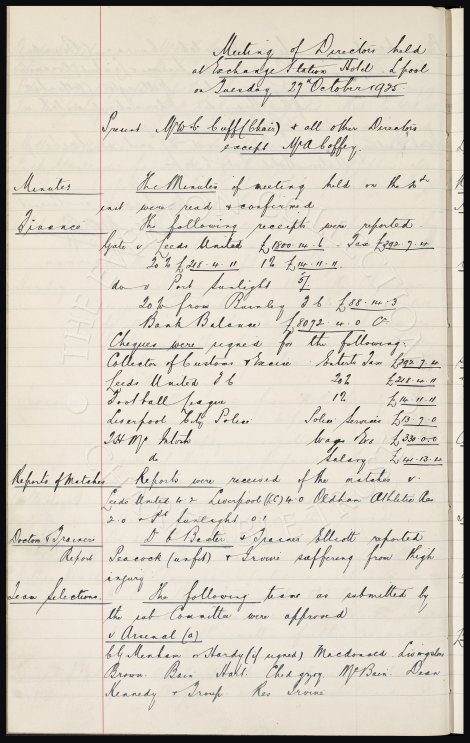 Meeting of Directors held
at Exchange Station Hotel L'pool
on Tuesday 29th October 1935
Present Mr W C Cuff (Chair) & all other Directors
except Mr A Coffey.
Minutes The Minutes of meeting held on the
inst were read & confirmed
Finance The following receipts were reported
Gate v Leeds United £1800.14.6 Tax £392.7.4
20% £218.4.11 1% £14.11.11.
do v Port Sunlight 5/
20% from Burnley F.C. £88.14.3
Bank Balance £8072.4.0
Cheques were signed for the following:
Collector of Customs & Excise Enterts Tax £392.7.4
Leeds United F C 20% £218.4.11
Football League 1% £14.11.11
Liverpool City Police Police Services £13.7.0
T H Mc Intosh Wages £330.0.0
do Salary
Reports of Matches Reports were received of the matches v.
Leeds United 4-2 Liverpool 4-0 Oldham Athletic Res
2-0 & Pt Sunlight 0-1
Doctor & Trainers Dr C Baxter & Trainer Elliott reported
Report Peacock (unfit) & Irvine suffering from thigh
injury
Team Selections. The following teams as submitted by
the sub Committee were approved
v Arsenal (a)
C G Menham or Hardy (if signed) Macdonald. Livingstone
Brown. Bain Hart. Chedgzoy. McBain. Dean
Kennedy & Troup Res Irvine